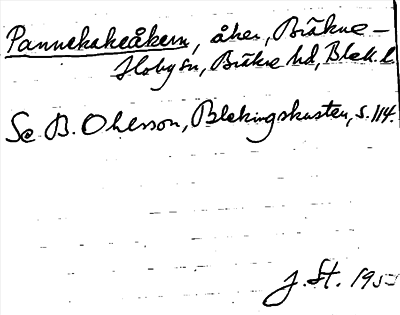 Pannekakeåkern, åker, Bräkne-
Hoby sn, Bräkne hd, Blek. l.
Se B. Ohlsson, Blekingskusten, s. 114.
J. St. 195